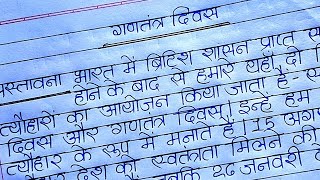 गणतंत्र दिवस
प्रस्तावना भारत में ब्रिटिश शासन प्राप्त
होने के बाद से हमारे यहाँ दो
त्यौहारों का आयोजन किया जाता है-
दिवस और गणतंत्र दिवस। इन्हें हम
त्यौहार के रूप में मनाते हैं। 15 अगस्
देश को स्वतंत्रता मिलने की
26 जनवरी